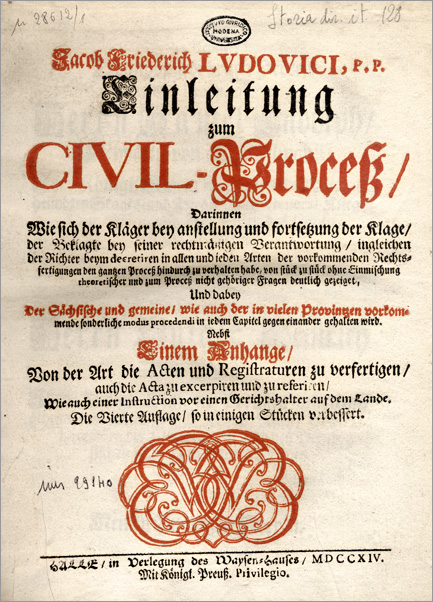 n 28612/1
Storia dir. it. 128
MODENA
Jacob Friederich LVDOVICI, P. P.
Einleitung
zum
CIVIL-Proceß/
Darinnen
Wie sich der Kläger bey anstellung und fortsetzung der Klage/
der Beklagte bey seiner rechtmäßigen Verantwortung/ ingleichen
der Richter beym decretiren in allen und ieden Arten der vorkommenden Rechts-
fertigungen den gantzen Proceß hindurch zu verhalten habe, von stück zu stück ohne Einmischung
theoretischer und zum Proceß nicht gehöriger Fragen deutlich gezeiget,
Und dabey
Der Sächsische und gemeine/ wie auch der in vielen Provintzen vorkom-
mende sonderliche modus procedendi in iedem Capitel gegen einander gehalten wird.
Nebst
Einem Anhange/
Von der Art die Acten und Registraturen zu verfertigen/
auch die Acta zu excerpiren und zu referiren/
Wie auch einer Instruction vor einen Gerichtshalter auf dem Lande.
Die Vierte Auflage/ so in einigen Stücken verbessert.
29140
HALLE/ in Verlegung des Waysen-Hauses/ MDCCXIV.
Mit Königl. Preuß. Privilegio.